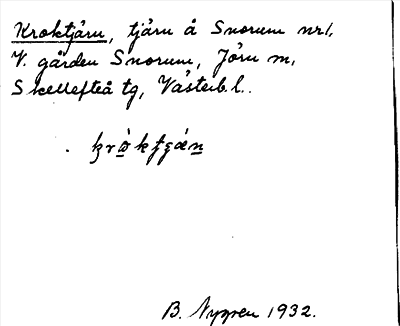 Kroktjärn, tjärn å Snorum nr1,
V. gården Snorum, Jörn m,
Skellefteå tg, Västerb.l..
B. Nygren 1932.